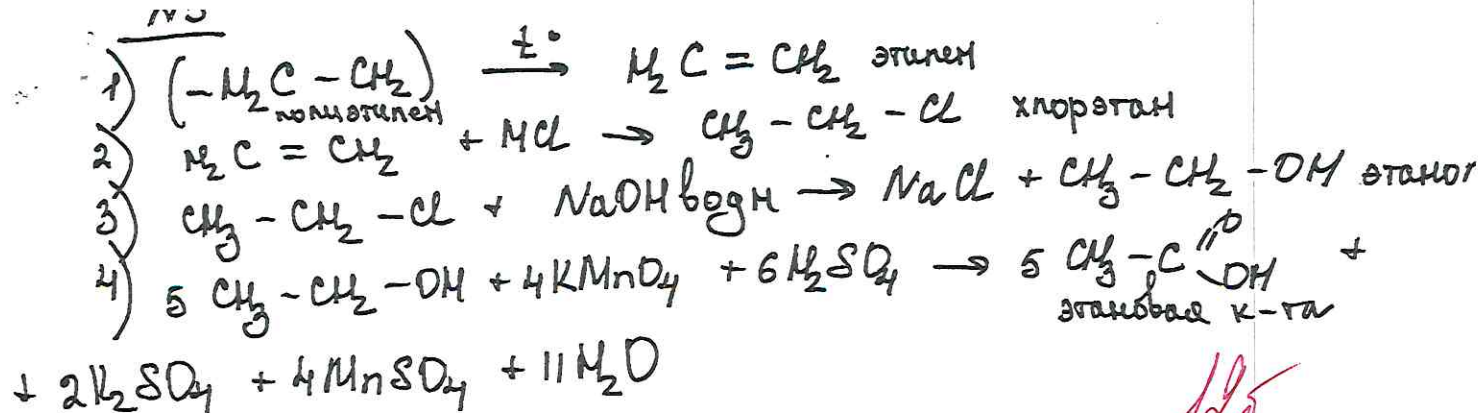 N5
1) (-H₂C - CH₂) t° → H₂C = CH₂ этилен
полиэтилен
2) H₂C = CH₂ + HCl → CH₃ - CH₂ - Cl хлорэтан
3) CH₃ - CH₂ - Cl + NaOH водн → NaCl + CH₃ - CH₂ - OH этанол
4) 5 CH₃ - CH₂ - OH + 4KMnO₄ + 6H₂SO₄ → 5 CH₃ - C =O - OH +
этановая к-та
+ 2K₂SO₄ + 4MnSO₄ + 11H₂O